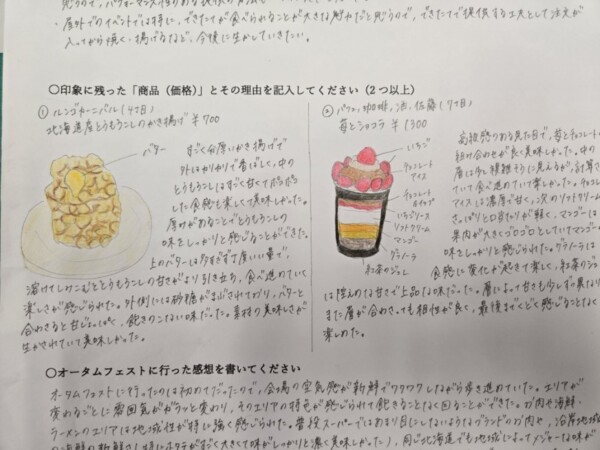 ・屋外でのイベントでは特に、できたてが食べられることが大きな魅力だと思うので、できたてで提供する工夫として注文が
入ってから焼く・揚げるなど、今後に生かしていきたい。
○印象に残った「商品（価格）」とその理由を記入してください（2つ以上）
① ルンゴカーニバル（4丁目）
北海道産とうもろこしのかき揚げ ¥700
バター
すごく分厚いかき揚げで
外はカリカリで香ばしく、中の
とうもろこしはすごく甘くてポロポロ
した食感も楽しくて美味しかった。
厚みがあることでとうもろこしの
味をしっかりと感じることができた。
上のバターは多すぎず丁度いい量で、
溶けてしみこむととうもろこしの甘さがより引き立ち、食べ進めていて
楽しさが感じられた。外側には砂糖がまぶされており、バターと
合わさると甘じょっぱく、飽きのこない味だった。素材の美味しさが
生かされていて美味しかった。
② パフェ、珈琲、酒、佐藤（7丁目）
苺とショコラ ¥1300
いちご
チョコレート
アイス
チョコレート
ホイップ
いちごソース
ソフトクリーム
マンゴー
グラノーラ
紅茶のジュレ
高級感のある見た目で、苺とチョコレートの
組み合わせが良く美味しかった。中の
層は少し複雑そうに見えるが、計算さ
れていて食べ進めていて楽しかった。チョコレート
アイスは濃厚で甘く、次のソフトクリーム
さっぱりと口当たりが軽く、マンゴーは
果肉が大きくゴロゴロとしていてマンゴーの
味をしっかりと感じられた。グラノーラは
食感に変化が起きて楽しく、紅茶のジュレ
は控えめな甘さで上品な味だった。層によって甘さも少しずつ異なり
また層が合わさっても相性が良く、最後までくどく感じることなく
楽しめた。
○オータムフェストに行った感想を書いてください
オータムフェストに行ったのは初めてだったので、会場の空気感が新鮮でワクワクしながら歩き進めていた。エリアが
変わるごとに雰囲気がガラッと変わり、そのエリアの特色が感じられて飽きることなく回ることができた。お肉や海鮮・
ラーメンのエリアは地域性が特に強く感じられた。普段スーパーではあまり目にしないようなブランドのお肉や、沿岸地域
の海鮮の新鮮さ（特にホタテがすごく大きくて味がしっかりと濃く美味しかった）、同じ北海道でも地域によってメジャーな味が